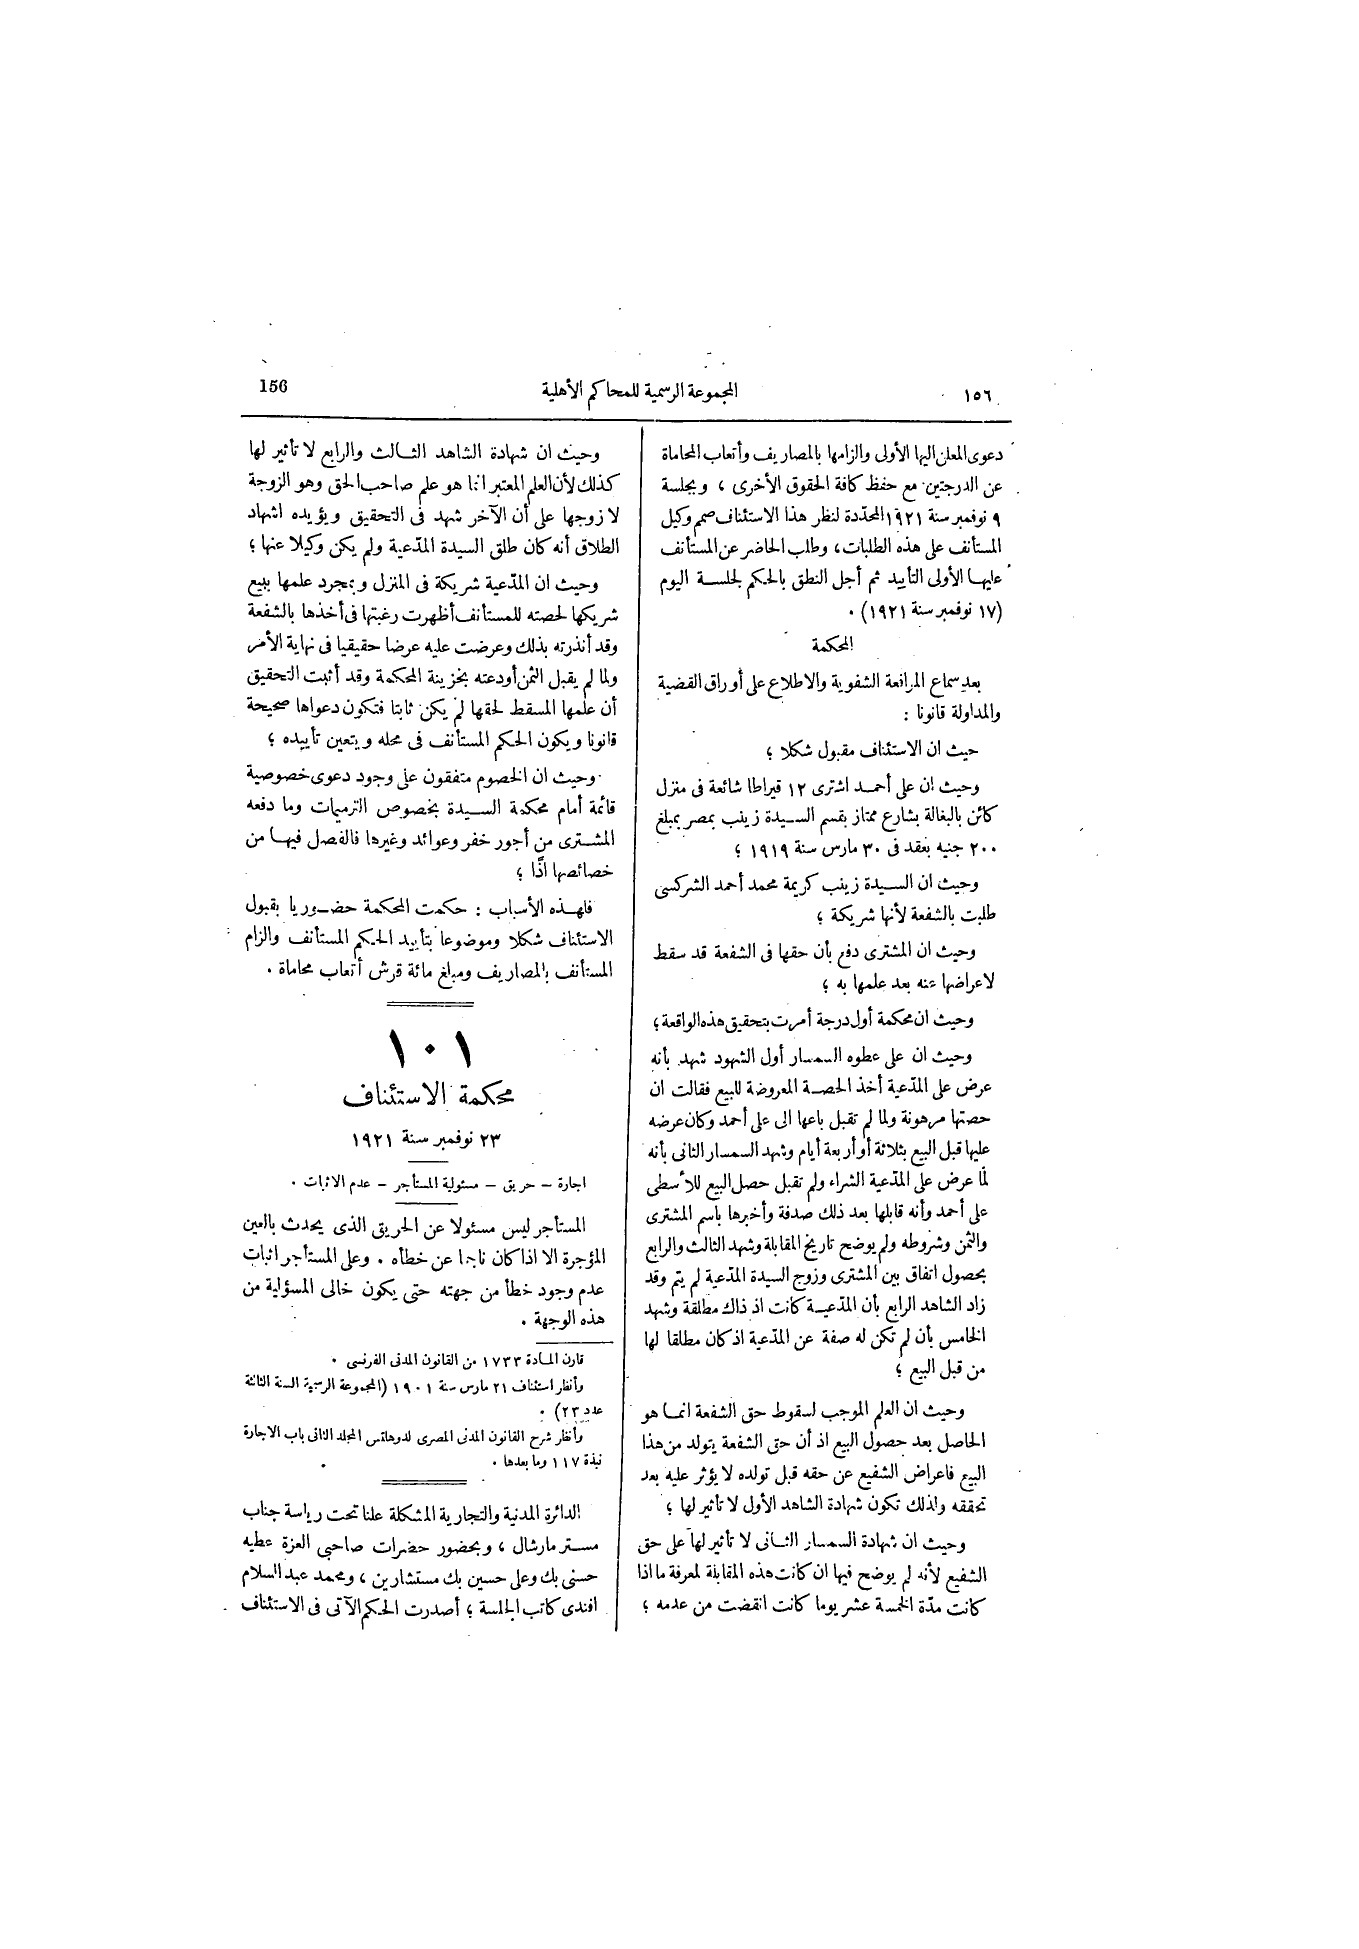 ١٥٦
المجموعة الرسمية للمحاكم الأهلية
156
دعوى المعلن اليها الأولى والزامها بالمصاريف وأتعاب المحاماة
عن الدرجتين مع حفظ كافة الحقوق الأخرى ، وبجلسة
٩ نوفمبر سنة ١٩٢١ المحدّدة لنظر هذا الاستئناف صمم وكيل
المستأنف على هذه الطلبات، وطلب الحاضر عن المستأنف
عليها الأولى التأييد ثم أجل النطق بالحكم لجلسة اليوم
(١٧ نوفمبر سنة ١٩٢١) .
المحكمة
بعد سماع المرافعة الشفوية والاطلاع على أوراق القضية
والمداولة قانونا :
حيث ان الاستئناف مقبول شكلا ؛
وحيث ان على أحمد اشترى ١٢ قيراطا شائعة فى منزل
كائن بالبغالة بشارع ممتاز بقسم السيدة زينب بمصر بمبلغ
٢٠٠ جنيه بعقد فى ٣٠ مارس سنة ١٩١٩ ؛
وحيث ان السيدة زينب كريمة محمد أحمد الشركسى
طلبت بالشفعة لأنها شريكة ؛
وحيث ان المشترى دفع بأن حقها فى الشفعة قد سقط
لاعراضها عنه بعد علمها به ؛
وحيث ان محكمة أول درجة أمرت بتحقيق هذه الواقعة؛
وحيث ان على عطوه السمسار أول الشهود شهد بأنه
عرض على المدّعية أخذ الحصة المعروضة للبيع فقالت ان
حصتها مرهونة ولما لم تقبل باعها الى على أحمد وكان عرضه
عليها قبل البيع بثلاثة أو أربعة أيام وشهد السمسار الثانى بأنه
لمّا عرض على المدّعية الشراء ولم تقبل حصل البيع للأسطى
على أحمد وأنه قابلها بعد ذلك صدفة وأخبرها باسم المشترى
والثمن وشروطه ولم يوضح تاريخ المقابلة وشهد الثالث والرابع
بحصول اتفاق بين المشترى وزوج السيدة المدّعية لم يتم وقد
زاد الشاهد الرابع بأن المدّعية كانت اذ ذاك مطلقة وشهد
الخامس بأن لم تكن له صفة عن المدّعية اذ كان مطلقا لها
من قبل البيع ؛
وحيث ان العلم الموجب لسقوط حق الشفعة انما هو
الحاصل بعد حصول البيع اذ أن حق الشفعة يتولد من هذا
البيع فاعراض الشفيع عن حقه قبل تولده لا يؤثر عليه بعد
تحققه ولذلك تكون شهادة الشاهد الأول لا تأثير لها ؛
وحيث ان شهادة السمسار الثانى لا تأثير لها على حق
الشفيع لأنه لم يوضح فيها ان كانت هذه المقابلة لمعرفة ما اذا
كانت مدّة الخمسة عشر يوما كانت انقضت من عدمه ؛
وحيث ان شهادة الشاهد الثالث والرابع لا تأثير لها
كذلك لأن العلم المعتبر انما هو علم صاحب الحق وهو الزوجة
لا زوجها على أن الآخر شهد فى التحقيق ويؤيده اشهاد
الطلاق أنه كان طلق السيدة المدّعية ولم يكن وكيلا عنها ؛
وحيث ان المدّعية شريكة فى المنزل وبمجرد علمها ببيع
شريكها لحصته للمستأنف أظهرت رغبتها فى أخذها بالشفعة
وقد أنذرته بذلك وعرضت عليه عرضا حقيقيا فى نهاية الأمر
ولما لم يقبل الثمن أودعته بخزينة المحكمة وقد أثبت التحقيق
أن علمها المسقط لحقها لم يكن ثابتا فتكون دعواها صحيحة
قانونا ويكون الحكم المستأنف فى محله ويتعين تأييده ؛
وحيث ان الخصوم متفقون على وجود دعوى خصوصية
قائمة أمام محكمة السيدة بخصوص الترميمات وما دفعه
المشترى من أجور خفر وعوائد وغيرها فالفصل فيها من
خصائصها اذًا ؛
فلهذه الأسباب : حكمت المحكمة حضوريا بقبول
الاستئناف شكلا وموضوعا بتأييد الحكم المستأنف والزام
المستأنف بالمصاريف ومبلغ مائة قرش أتعاب محاماة .
١٠١
محكمة الاستئناف
٢٣ نوفمبر سنة ١٩٢١
اجارة – حريق – مسئولية المستأجر – عدم الاثبات .
المستأجر ليس مسئولا عن الحريق الذى يحدث بالعين
المؤجرة الا اذا كان ناتجا عن خطأه . وعلى المستأجر اثبات
عدم وجود خطأ من جهته حتى يكون خالى المسؤلية من
هذه الوجهة .
قارن المادة ١٧٣٣ من القانون المدنى الفرنسى .
وأنظر استئناف ٢١ مارس سنة ١٩٠١ (المجموعة الرسمية السنة الثالثة
عدد ٢٣) .
وأنظر شرح القانون المدنى المصرى لدوهلتس المجلد الثانى باب الاجارة
نبذة ١١٧ وما بعدها .
الدائرة المدنية والتجارية المشكلة علنا تحت رياسة جناب
مستر مارشال ، وبحضور حضرات صاحبى العزة عطيه
حسنى بك وعلى حسين بك مستشارين ، ومحمد عبد السلام
افندى كاتب الجلسة ؛ أصدرت الحكم الآتى فى الاستئناف